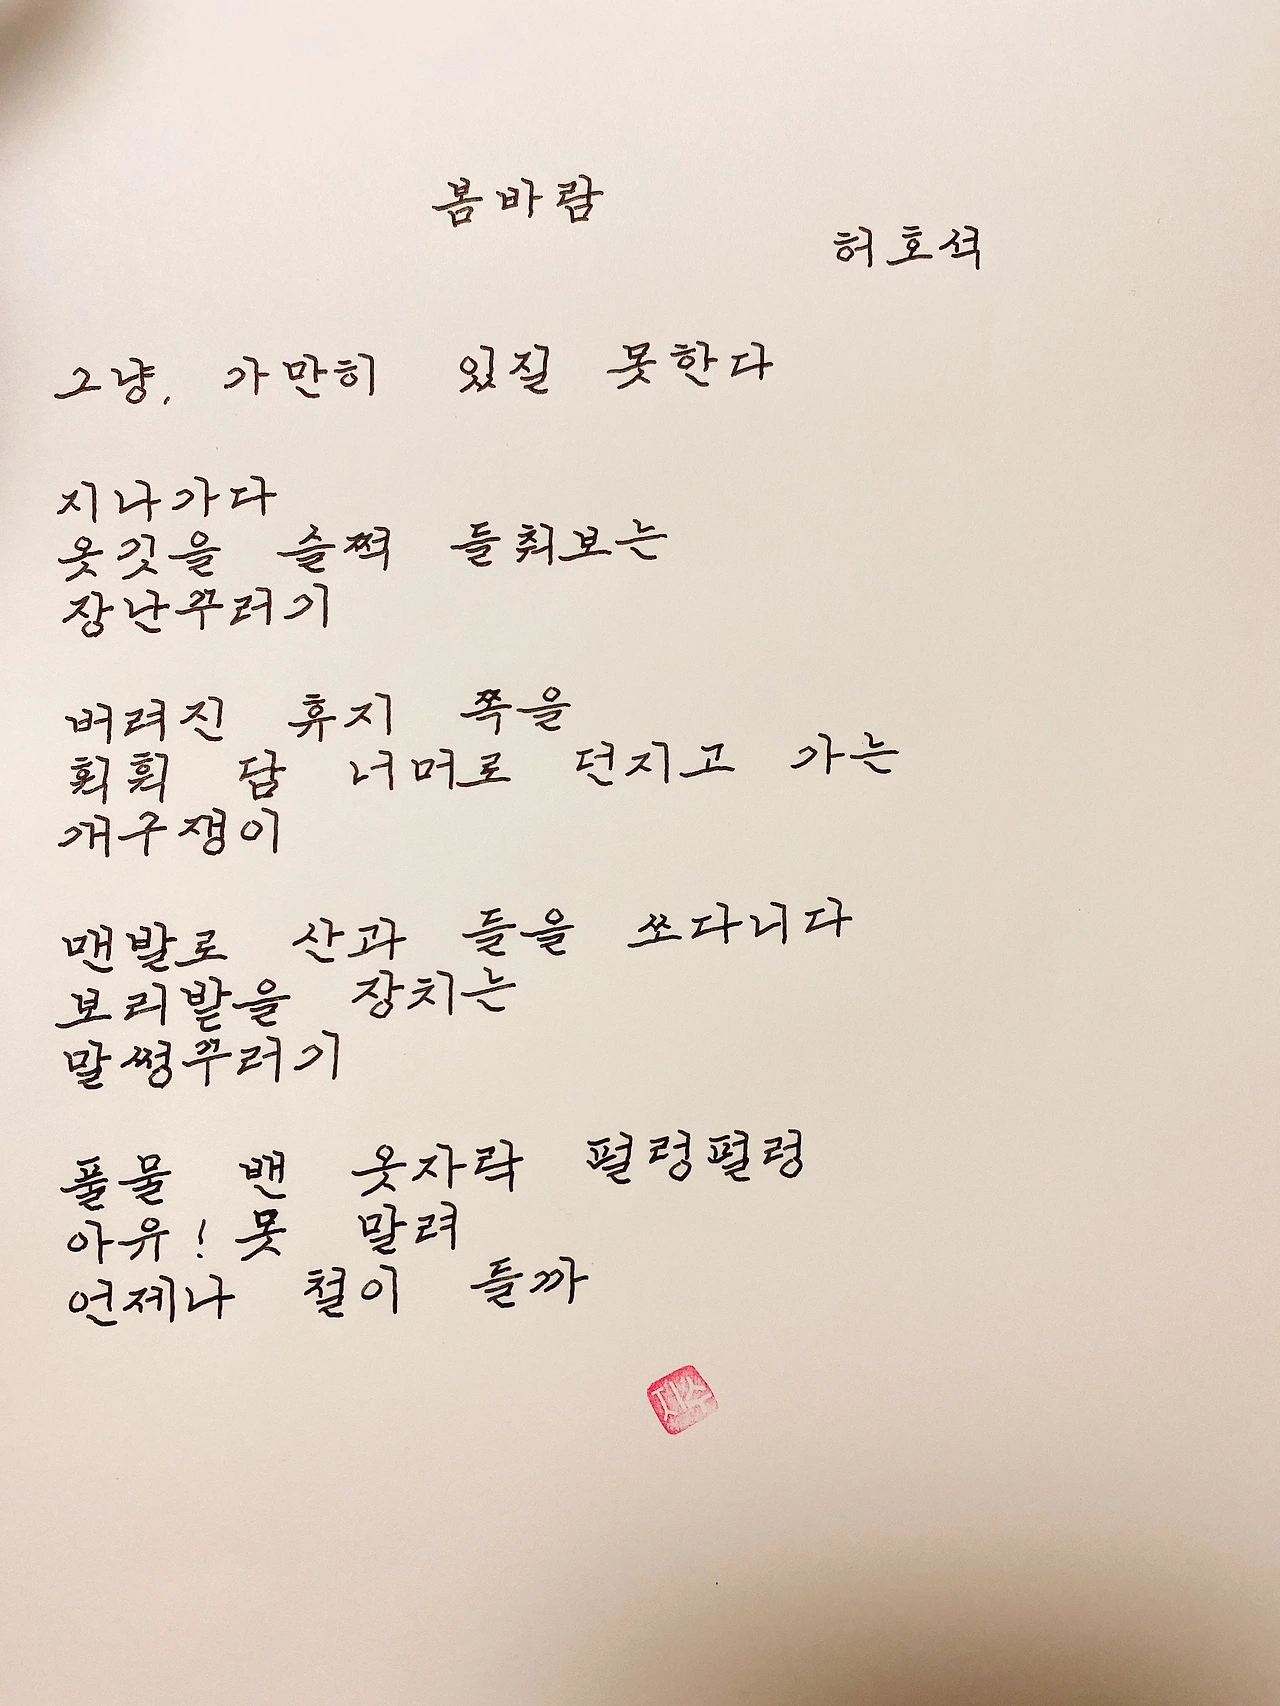 봄바람
허호석
그냥, 가만히 있질 못한다
지나가다
옷깃을 슬쩍 들춰보는
장난꾸러기
버려진 휴지 쪽을
휙휙 담 너머로 던지고 가는
개구쟁이
맨발로 산과 들을 쏘다니다
보리밭을 장치는
말썽꾸러기
풀물 밴 옷자락 펄렁펄렁
아유! 못 말려
언제나 철이 들까
지수